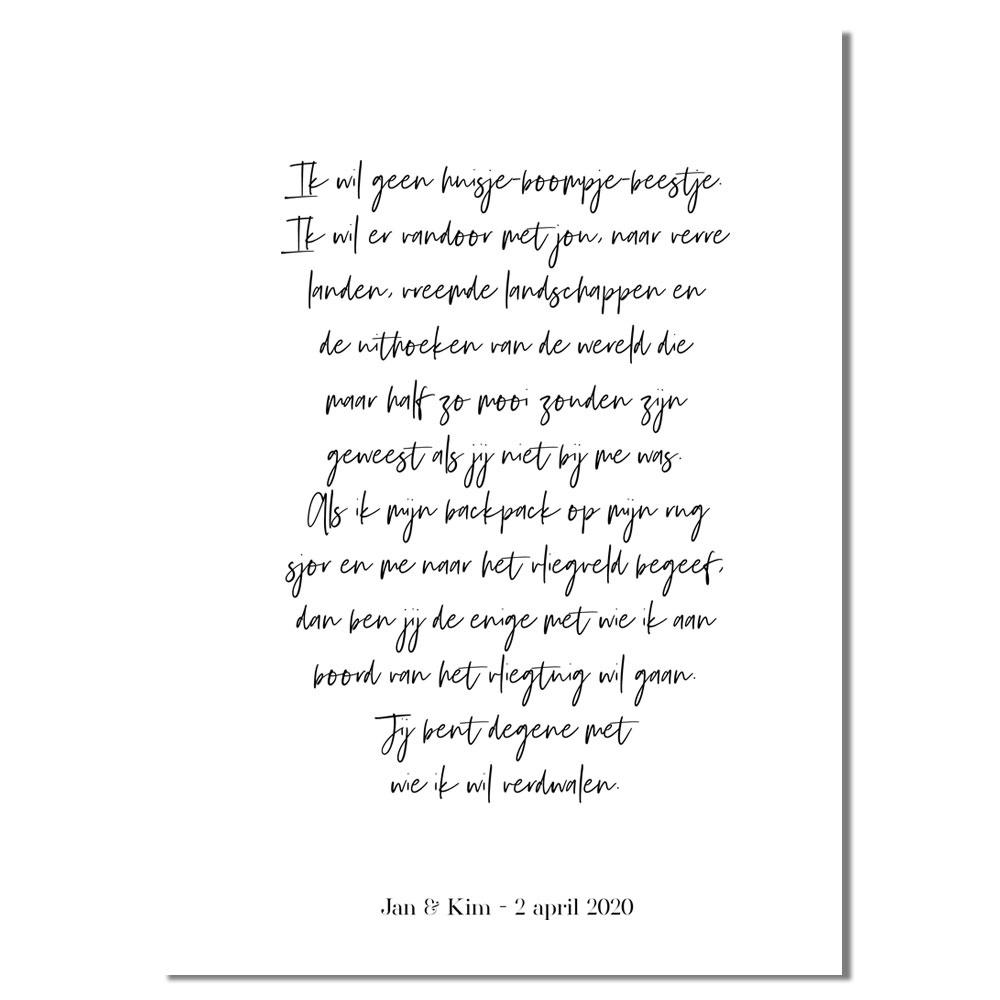 Ik wil geen huisje-boompje-beestje.
Ik wil er vandoor met jou, naar verre
landen, vreemde landschappen en
de uithoeken van de wereld die
maar half zo mooi zouden zijn
geweest als jij niet bij me was.
Als ik mijn backpack op mijn rug
sjor en me naar het vliegveld begeef,
dan ben jij de enige met wie ik aan
boord van het vliegtuig wil gaan.
Jij bent degene met
wie ik wil verdwalen.
Jan & Kim - 2 april 2020